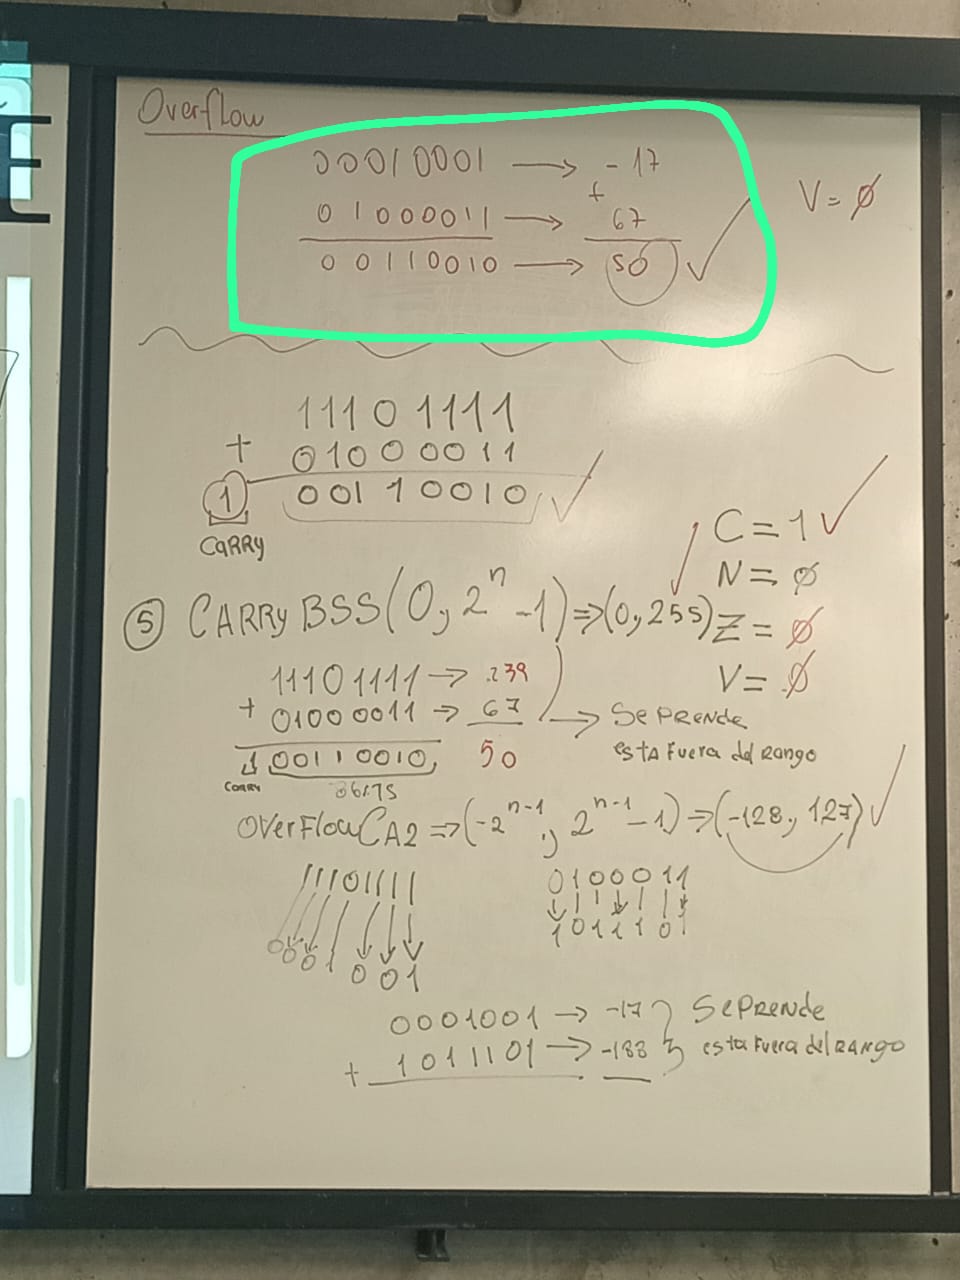 Overflow
00010001 → -17
+
01000011 → 67
00110010 → 50 ✓
V = ∅
11101111
+ 01000011
1 00110010 ✓
CARRY
C = 1 ✓
N = ∅
Z = ∅
V = ∅
⑤ CARRY BSS (0, 2ⁿ - 1) ⇒ (0, 255)
11101111 → 239
+ 01000011 → 67
1 00110010 50
CARRY
→ Se PRENDE
esta Fuera del Rango
OverFlow CA2 ⇒ (-2ⁿ⁻¹, 2ⁿ⁻¹ - 1) ⇒ (-128, 127) ✓
11101111 0100011
0001001 1011101
0001001 → -17 } SePRende
+ 1011101 → -188 } esta Fuera del RANGO